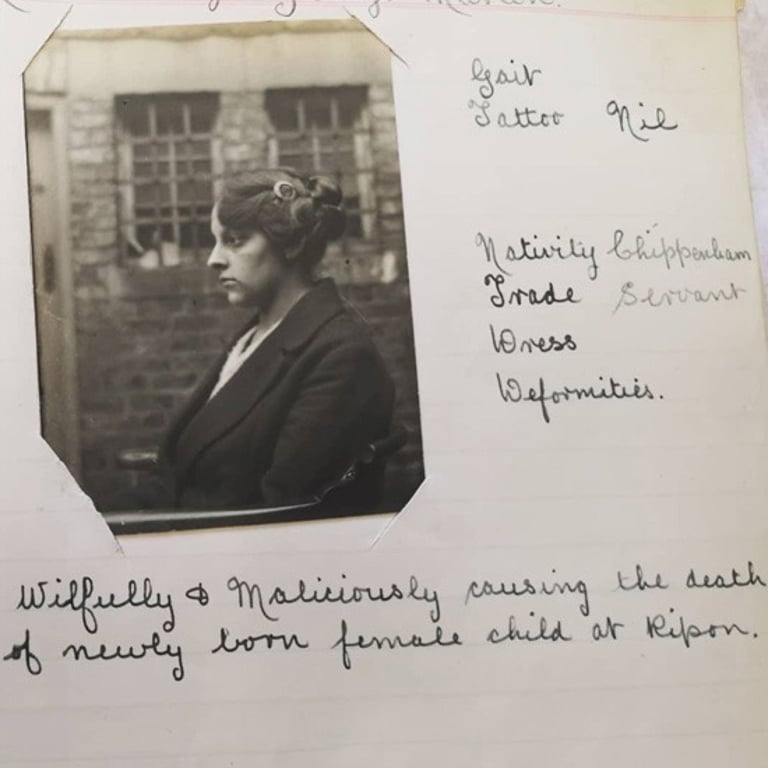 Gait
Tattoo Nil
Nativity Chippenham
Trade Servant
Dress
Deformities.
Wilfully & Maliciously causing the death
of newly born female child at Ripon.